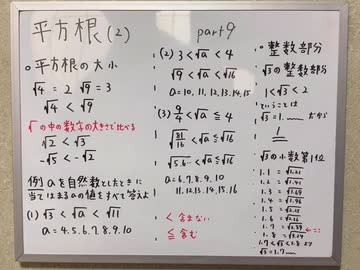 平方根(2)
part9
○平方根の大小
√4 = 2 √9 = 3
√4 < √9
√の中の数字の大きさで比べる
√2 < √3
-√5 < -√2
例) aを自然数としたときに
当てはまるaの値をすべて答えよ
(1) √3 < √a < √11
a = 4.5.6.7.8.9.10
(2) 3 < √a < 4
√9 < √a < √16
a = 10.11.12.13.14.15
(3) 9/4 < √a ≦ 4
√81/16 < √a ≦ √16
√5.6… < √a ≦ √16
a = 6.7.8.9.10
11.12.13.14.15.16
< 含まない
≦ 含む
○整数部分
√3の整数部分
1 < √3 < 2
ということは
√3 = 1.…… だから
1
√3の小数第1位
1.1 = √1.21
1.2 = √1.44
1.3 = √1.69
1.4 = √1.96
1.5 = √2.25
1.6 = √2.56
1.7 = √2.89
1.8 = √3.24
1.7 < √3 < 1.8 より
√3 = 1.7……